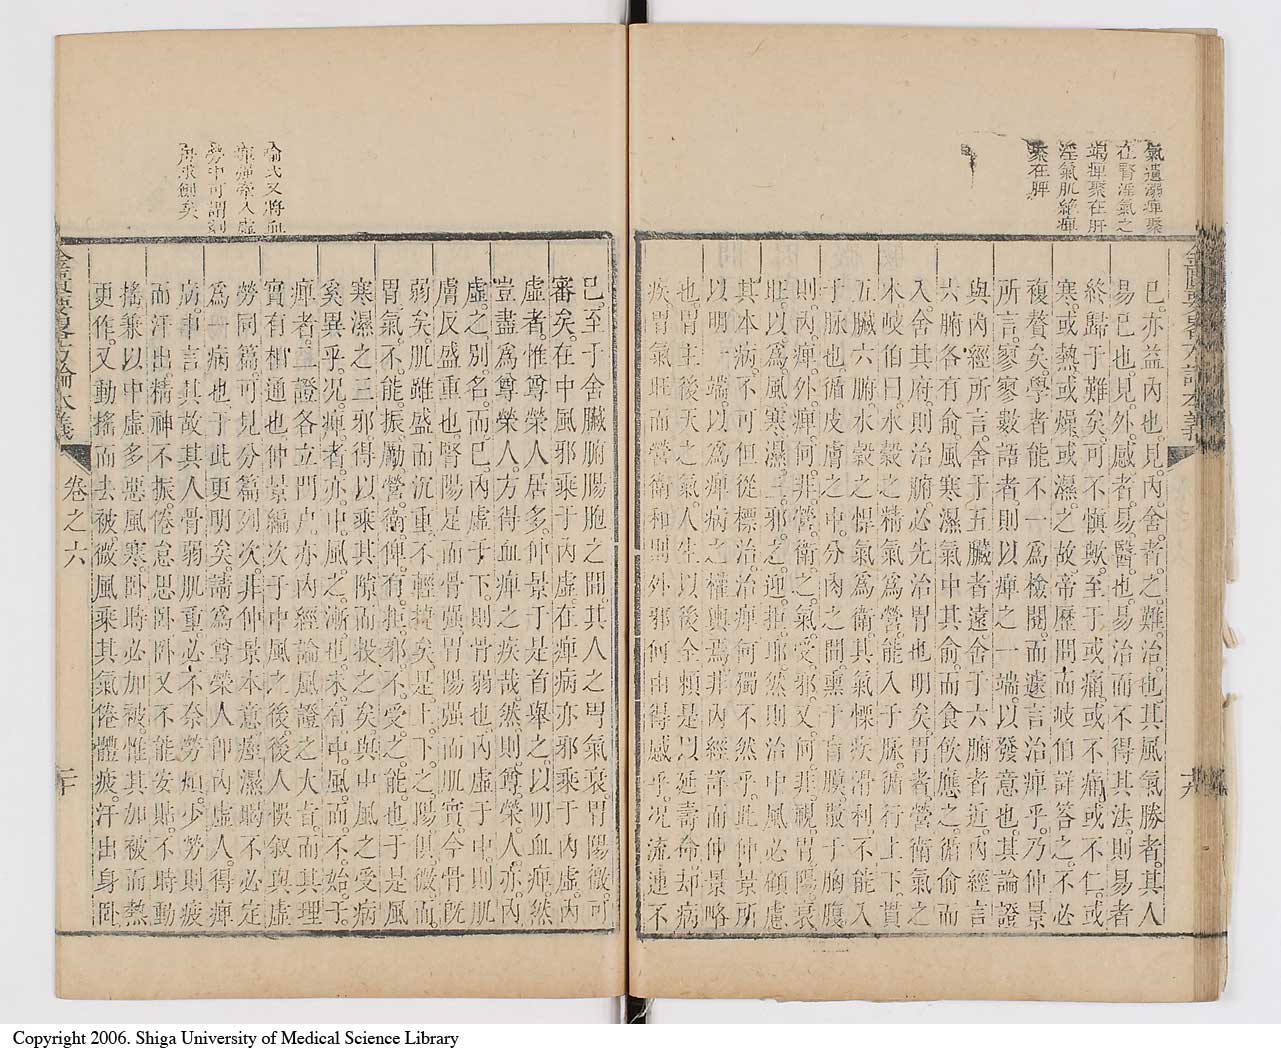 氣遺溺痺聚
在腎淫氣乏
竭痺聚在肝
淫氣肌絶痺
聚在脾
已亦益內也見內舍者之難治也其風氣勝者其人
易已也見外感者易醫也易治而不得其法則易者
終歸于難矣可不愼歟至于或痛或不痛或不仁或
寒或熱或燥或濕之故帝歷問而岐伯詳答之不必
複贅矣學者能不一爲檢閱而遽言治痺乎乃仲景
所言寥寥數語者則以痺之一端以發意也其論證
與內經所言舍于五臟者遠舍于六腑者近內經言
六腑各有俞風寒濕氣中其俞而食飮應之循俞而
入舍其府則治腑必先治胃也明矣胃者營衛氣之
本岐伯曰水穀之精氣爲營能入于脉循行上下貫
五臟六腑水穀之悍氣爲衛其氣慓疾滑利不能入
于脉也循皮膚之中分肉之間熏于肓膜散于胸腹
則內痺外痺何非營衛之氣受邪又何非視胃陽衰
旺以爲風寒濕三邪之迎拒耶然則治中風必顧慮
其本病不可但從標治治痺何獨不然乎此仲景所
以明一端以爲痺病之權輿焉非內經詳而仲景略
也胃主後天之氣人生以後全賴是以延壽命却病
疾胃氣旺而營衛和則外邪何由得感乎况流連不
金匱要畧方論本義
喻氏又將血
痺牽入虛
勞中可謂
矣
已至于舍臟腑腸胞之間其人之胃氣衰胃陽微可
審矣在中風邪乘于內虛在痺病亦邪乘于內虛內
虛者惟尊榮人居多仲景于是首舉之以明血痺然
豈盡爲尊榮人方得血痺之疾哉然則尊榮人亦內
虛之別名而已內虛于下則骨弱也內虛于中則肌
膚反盛重也腎陽足而骨强胃陽强而肌實今骨旣
弱矣肌雖盛而沉重不輕捷矣是上下之陽俱微而
胃氣不能振勵營衛俾有拒邪不受之能也于是風
寒濕之三邪得以乘其隙而投之矣與中風之受病
奚異乎况痺者亦中風之漸也未有中風而不始于
痺者二證各立門户亦內經論風證之大旨而其理
實有相通也仲景編次于中風之後後人悞叙與虛
勞同篇可見分篇列次非仲景本意痙濕暍不必定
爲一病也于此更明矣請爲尊榮人卽內虛人得痺
病申言其故其人骨弱肌重必不奈勞如少勞則疲
而汗出精神不振倦怠思卧卧又不能安貼不時動
搖兼以中虛多惡風寒卧時必加被惟其加被而熱
更作又動搖而去被微風乘其氣倦體疲汗出身卧
金匱要畧方論本義
卷之六
二十
Copyright 2006. Shiga University of Medical Science Library